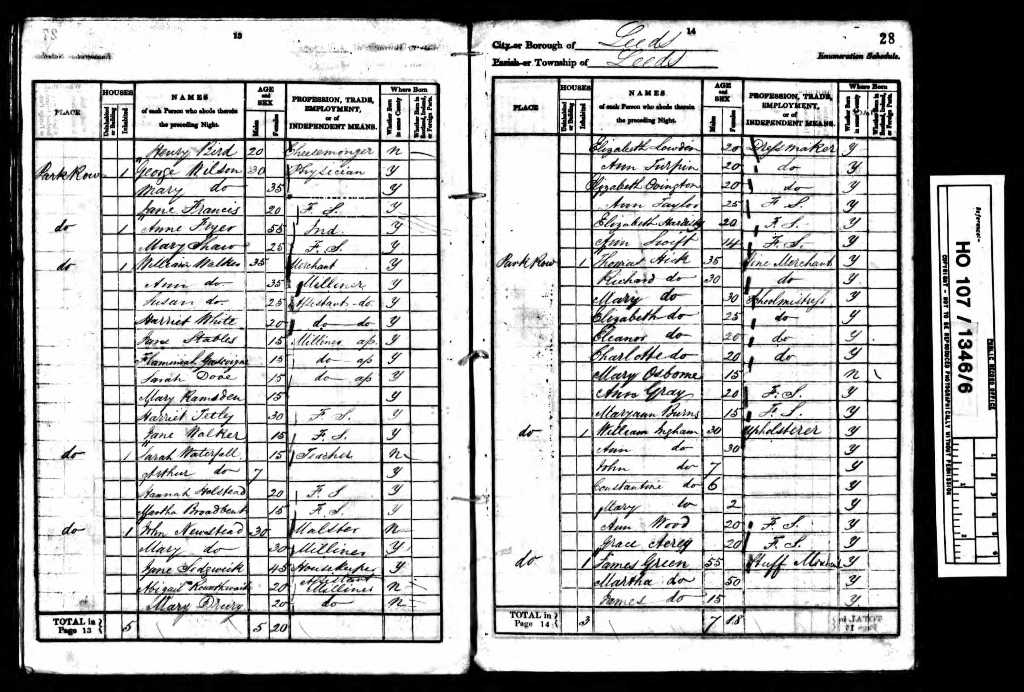 13
HOUSES
AGE and SEX
Where Born
PLACE
Uninhabited or Building
Inhabited
NAMES of each Person who abode therein the preceding Night.
Males
Females
PROFESSION, TRADE, EMPLOYMENT, or of INDEPENDENT MEANS.
Whether Born in same County
Whether Born in Scotland, Ireland, or Foreign Parts.
Henry Bird 20 Cheesemonger n
Park Row 1 George Wilson 30 Physician y
Mary do 35 y
Jane Francis 20 F. S. y
do 1 Anne Fryer 55 Ind. y
Mary Shaw 25 F. S. y
do 1 William Walker 35 Merchant y
Ann do 35 Milliner y
Susan do 25 Assistant do y
Harriet White 20 do do y
Jane Stables 15 Milliner ap y
Gascoigne 15 do ap y
Sarah Dove 15 do ap y
Mary Ramsden 15 y
Harriet Tetley 30 F. S. y
Jane Walker 15 F. S. y
do 1 Sarah Waterfall 15 Teacher n
Arthur do 7 y
Hannah Holstead 20 F. S y
Martha Broadbent 15 F. S. y
do 1 John Newstead 30 Malster n
Mary do 30 Milliner y
Jane Sedgwick 45 Housekeeper y
Abigail 20 Assistant Milliner n
Mary Drury 20 do n
TOTAL in Page 13 5 5 20
14
28
City or Borough of Leeds
Parish or Township of Leeds
Enumeration Schedule.
HOUSES
AGE and SEX
Where Born
PLACE
Uninhabited or Building
Inhabited
NAMES of each Person who abode therein the preceding Night.
Males
Females
PROFESSION, TRADE, EMPLOYMENT, or of INDEPENDENT MEANS.
Whether Born in same County
Whether Born in Scotland, Ireland, or Foreign Parts.
Elizabeth Lowden 20 Dressmaker y
Ann Turpin 20 do y
Elizabeth Ovington 20 do y
Ann Taylor 25 F S y
Elizabeth 20 F. S. y
Ann Swift 14 F. S. y
Park Row 1 Thomas Hick 35 Wine Merchant y
Richard do 30 do y
Mary do 30 Schoolmistress y
Elizabeth do 25 do y
Eleanor do 20 do y
Charlotte do 20 do y
Mary Osborne 15 n
Ann Gray 20 F. S. y
Maryann Burns 15 F. S. y
do 1 William Ingham 30 Upholsterer y
Ann do 30 y
John do 7 y
Constantine do 6 y
Mary do 2 y
Ann Wood 20 F. S. y
Grace Aerey 20 F. S. y
do 1 James Green 55 Stuff Merchant y
Martha do 50 y
James do 15 y
TOTAL in Page 14 3 7 18
Reference:-
HO 107 / 1346/6
PUBLIC RECORD OFFICE
COPYRIGHT - NOT TO BE REPRODUCED PHOTOGRAPHICALLY WITHOUT PERMISSION